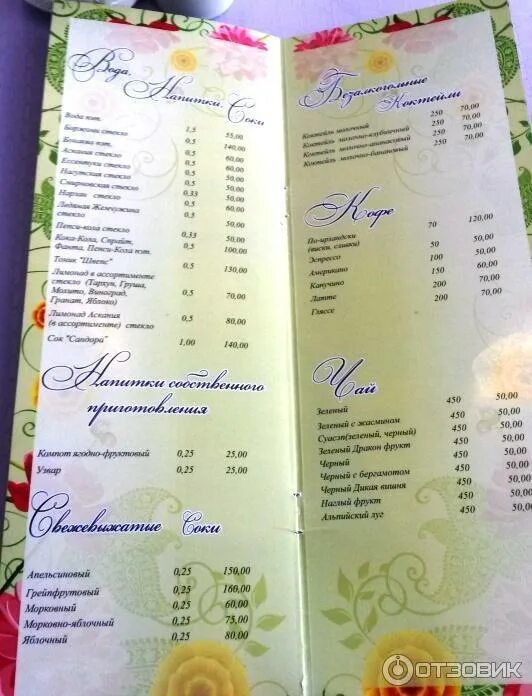 Вода,
Напитки, Соки
Вода пэт. 1,5 55,00
Боржоми стекло 0,5 140,00
Бонаква пэт. 0,5 60,00
Аскания стекло 0,5 60,00
Ессентуки стекло 0,5 50,00
Нагутская стекло 0,5 50,00
Смирновская стекло 0,5 50,00
Нарзан стекло 0,33 50,00
Ледяная Жемчужина 0,5 60,00
стекло
Пепси-кола стекло 0,33 50,00
Кока-Кола, Спрайт, 0,5 50,00
Фанта, Пепси-Кола пэт. 100,00
Тоник "Швепс" 0,5 130,00
Лимонад в ассортименте
стекло (Тархун, Груша,
Мохито, Виноград, 0,5 70,00
Гранат, Яблоко)
Лимонад Аскания 0,5 80,00
(в ассортименте) стекло
Сок "Сандора" 1,00 140,00
Напитки собственного
приготовления
Компот ягодно-фруктовый 0,25 25,00
Узвар 0,25 25,00
Свежевыжатые Соки
Апельсиновый 0,25 150,00
Грейпфрутовый 0,25 160,00
Морковный 0,25 60,00
Морковно-яблочный 0,25 75,00
Яблочный 0,25 80,00
Безалкогольные
Коктейли
Коктейль молочный 250 70,00
Коктейль молочно-клубничный 250 70,00
Коктейль молочно-ананасовый 250 70,00
Коктейль молочно-банановый 250 70,00
Кофе
По-ирландски 70 120,00
(виски, сливки)
Эспрессо 50 50,00
Американо 100 50,00
Капучино 150 60,00
Латте 200 70,00
Гляссе 200 70,00
Чай
Зеленый 450 50,00
Зеленый с жасмином 450 50,00
Суасэп(зеленый, черный) 450 50,00
Зеленый Дракон фрукт 450 50,00
Черный 450 50,00
Черный с бергамотом 450 50,00
Черный Дикая вишня 450 50,00
Наглый фрукт 450 50,00
Альпийский луг 450 50,00
ОТЗОВИК